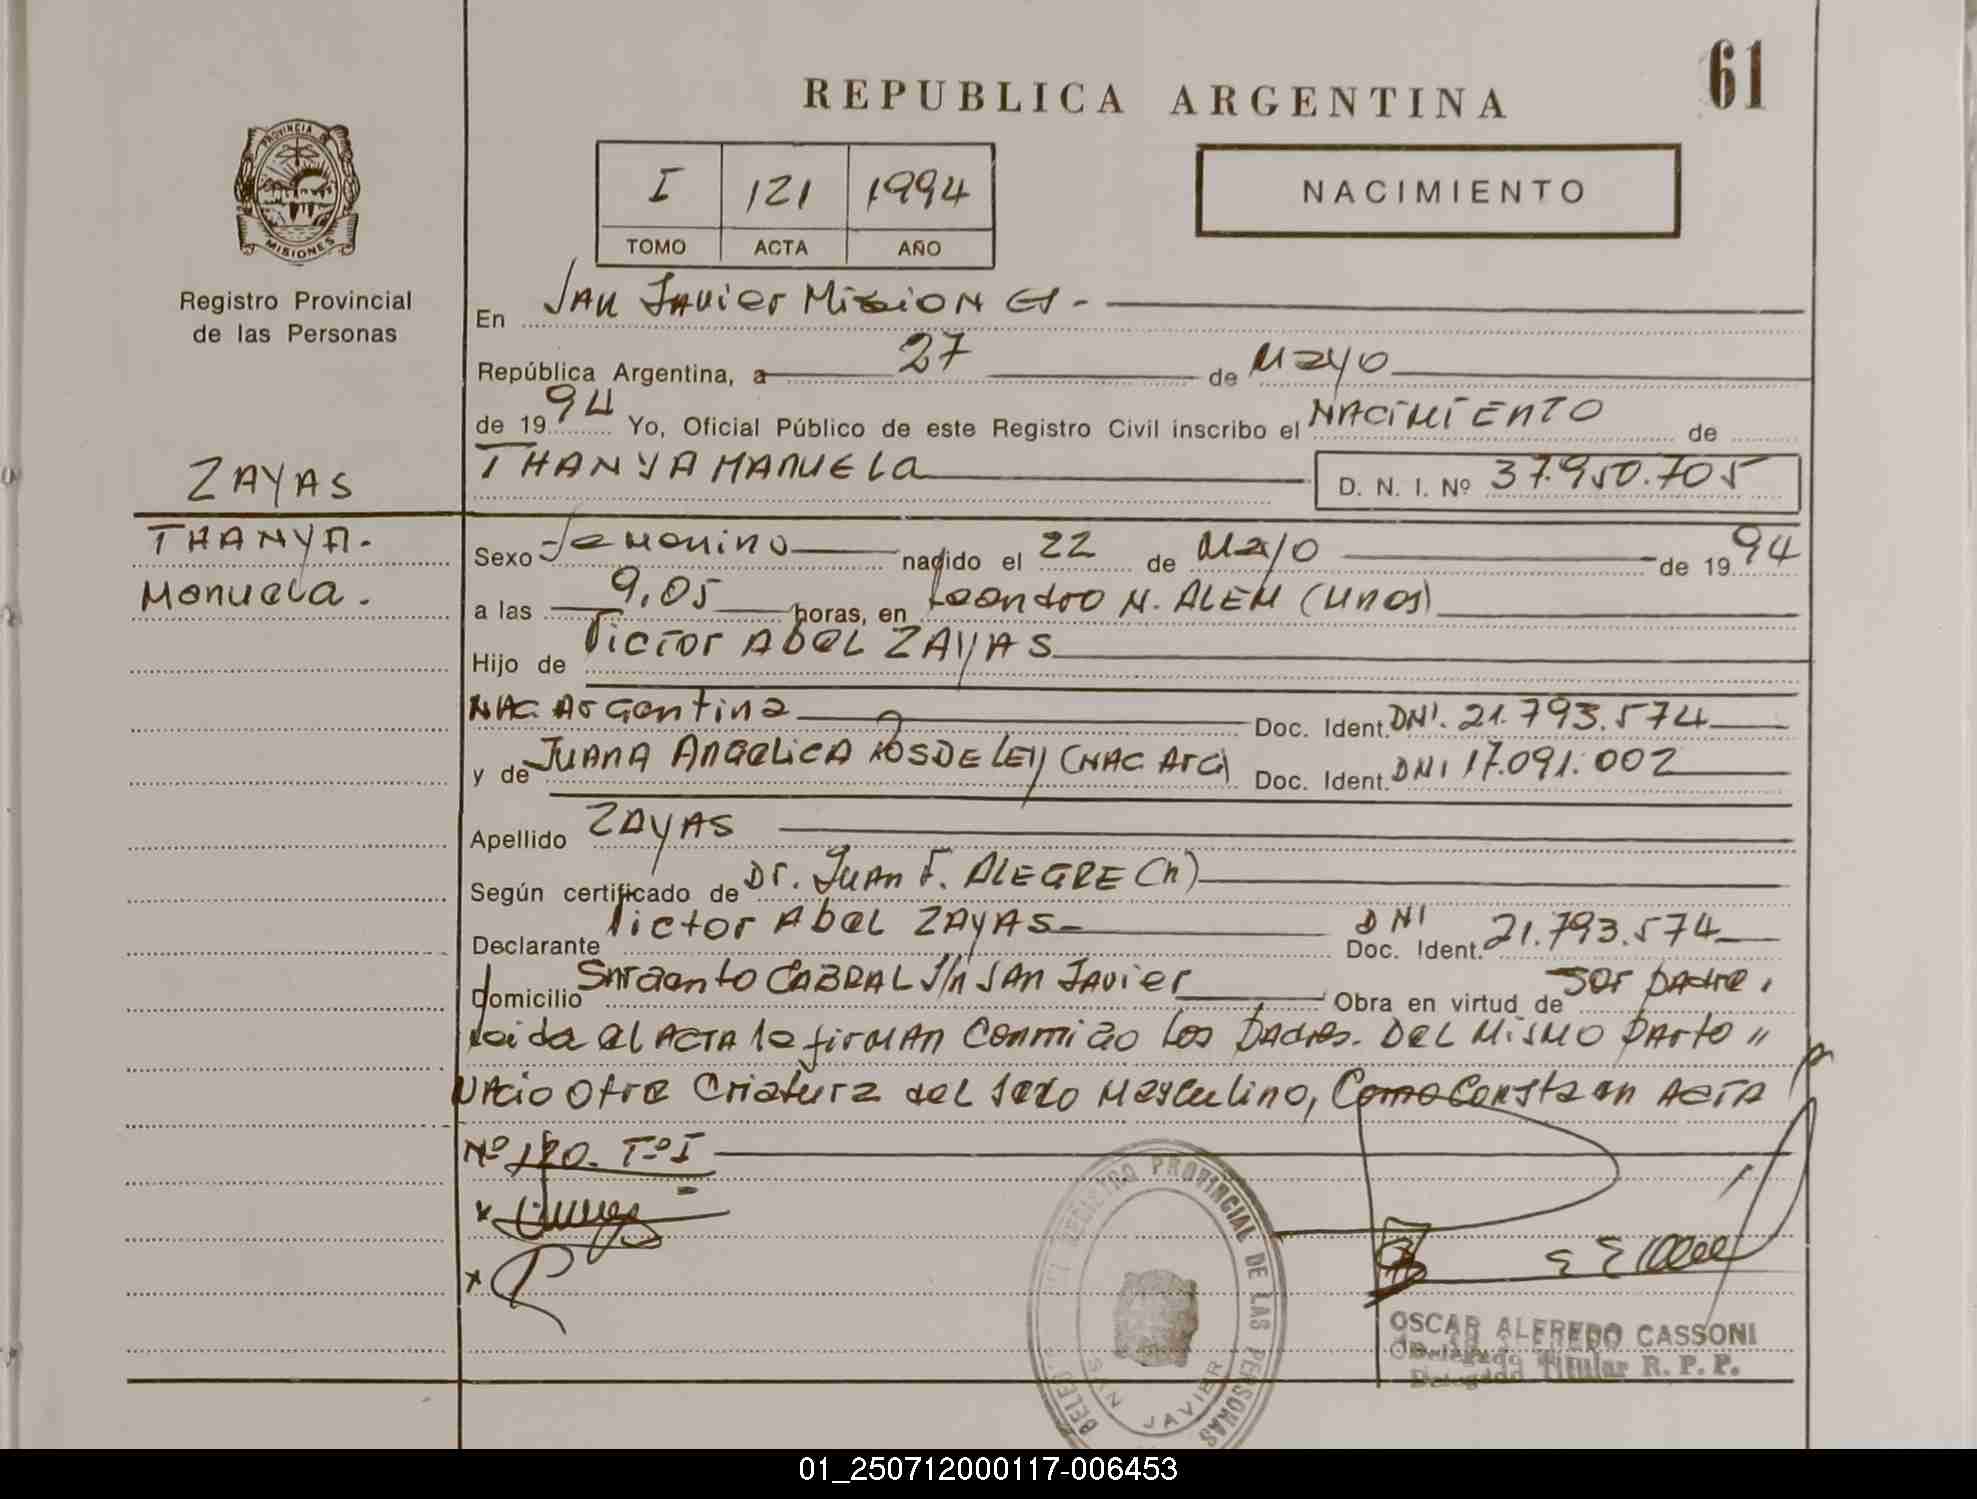 61
REPUBLICA ARGENTINA
PROVINCIA DE
MISIONES
Registro Provincial
de las Personas
I 121 1994
TOMO ACTA AÑO
NACIMIENTO
En San Javier Misiones -
República Argentina, a 27 de Mayo
de 1994 Yo, Oficial Público de este Registro Civil inscribo el NACIMIENTO de
THANYA MANUELA D. N. I. Nº 37.950.705
ZAYAS
THANYA.
Manuela.
Sexo Femenino nacido el 22 de Mayo de 1994
a las 9,05 horas, en Leandro N. ALEM (Mnes)
Hijo de Victor Abel ZAYAS
NAC. Argentina Doc. Ident. DNI. 21.793.574
y de JUANA ANGELICA ROSDELEY (NAC. Arg) Doc. Ident. DNI 17.091.002
Apellido ZAYAS
Según certificado de Dr. Juan F. ALEGRE (h)
Declarante Victor Abel ZAYAS DNI Doc. Ident. 21.793.574
Domicilio Sargento CABRAL S/N SAN Javier Obra en virtud de ser padre,
leida el ACTA la firman conmigo los padres. Del mismo parto "
Nacio otra criatura del sexo Masculino, como consta en ACTA
Nº 120. Tº I
REGISTRO PROVINCIAL DE LAS PERSONAS
SAN JAVIER
OSCAR ALFREDO CASSONI
Delegado Titular R. P. P.
01_250712000117-006453